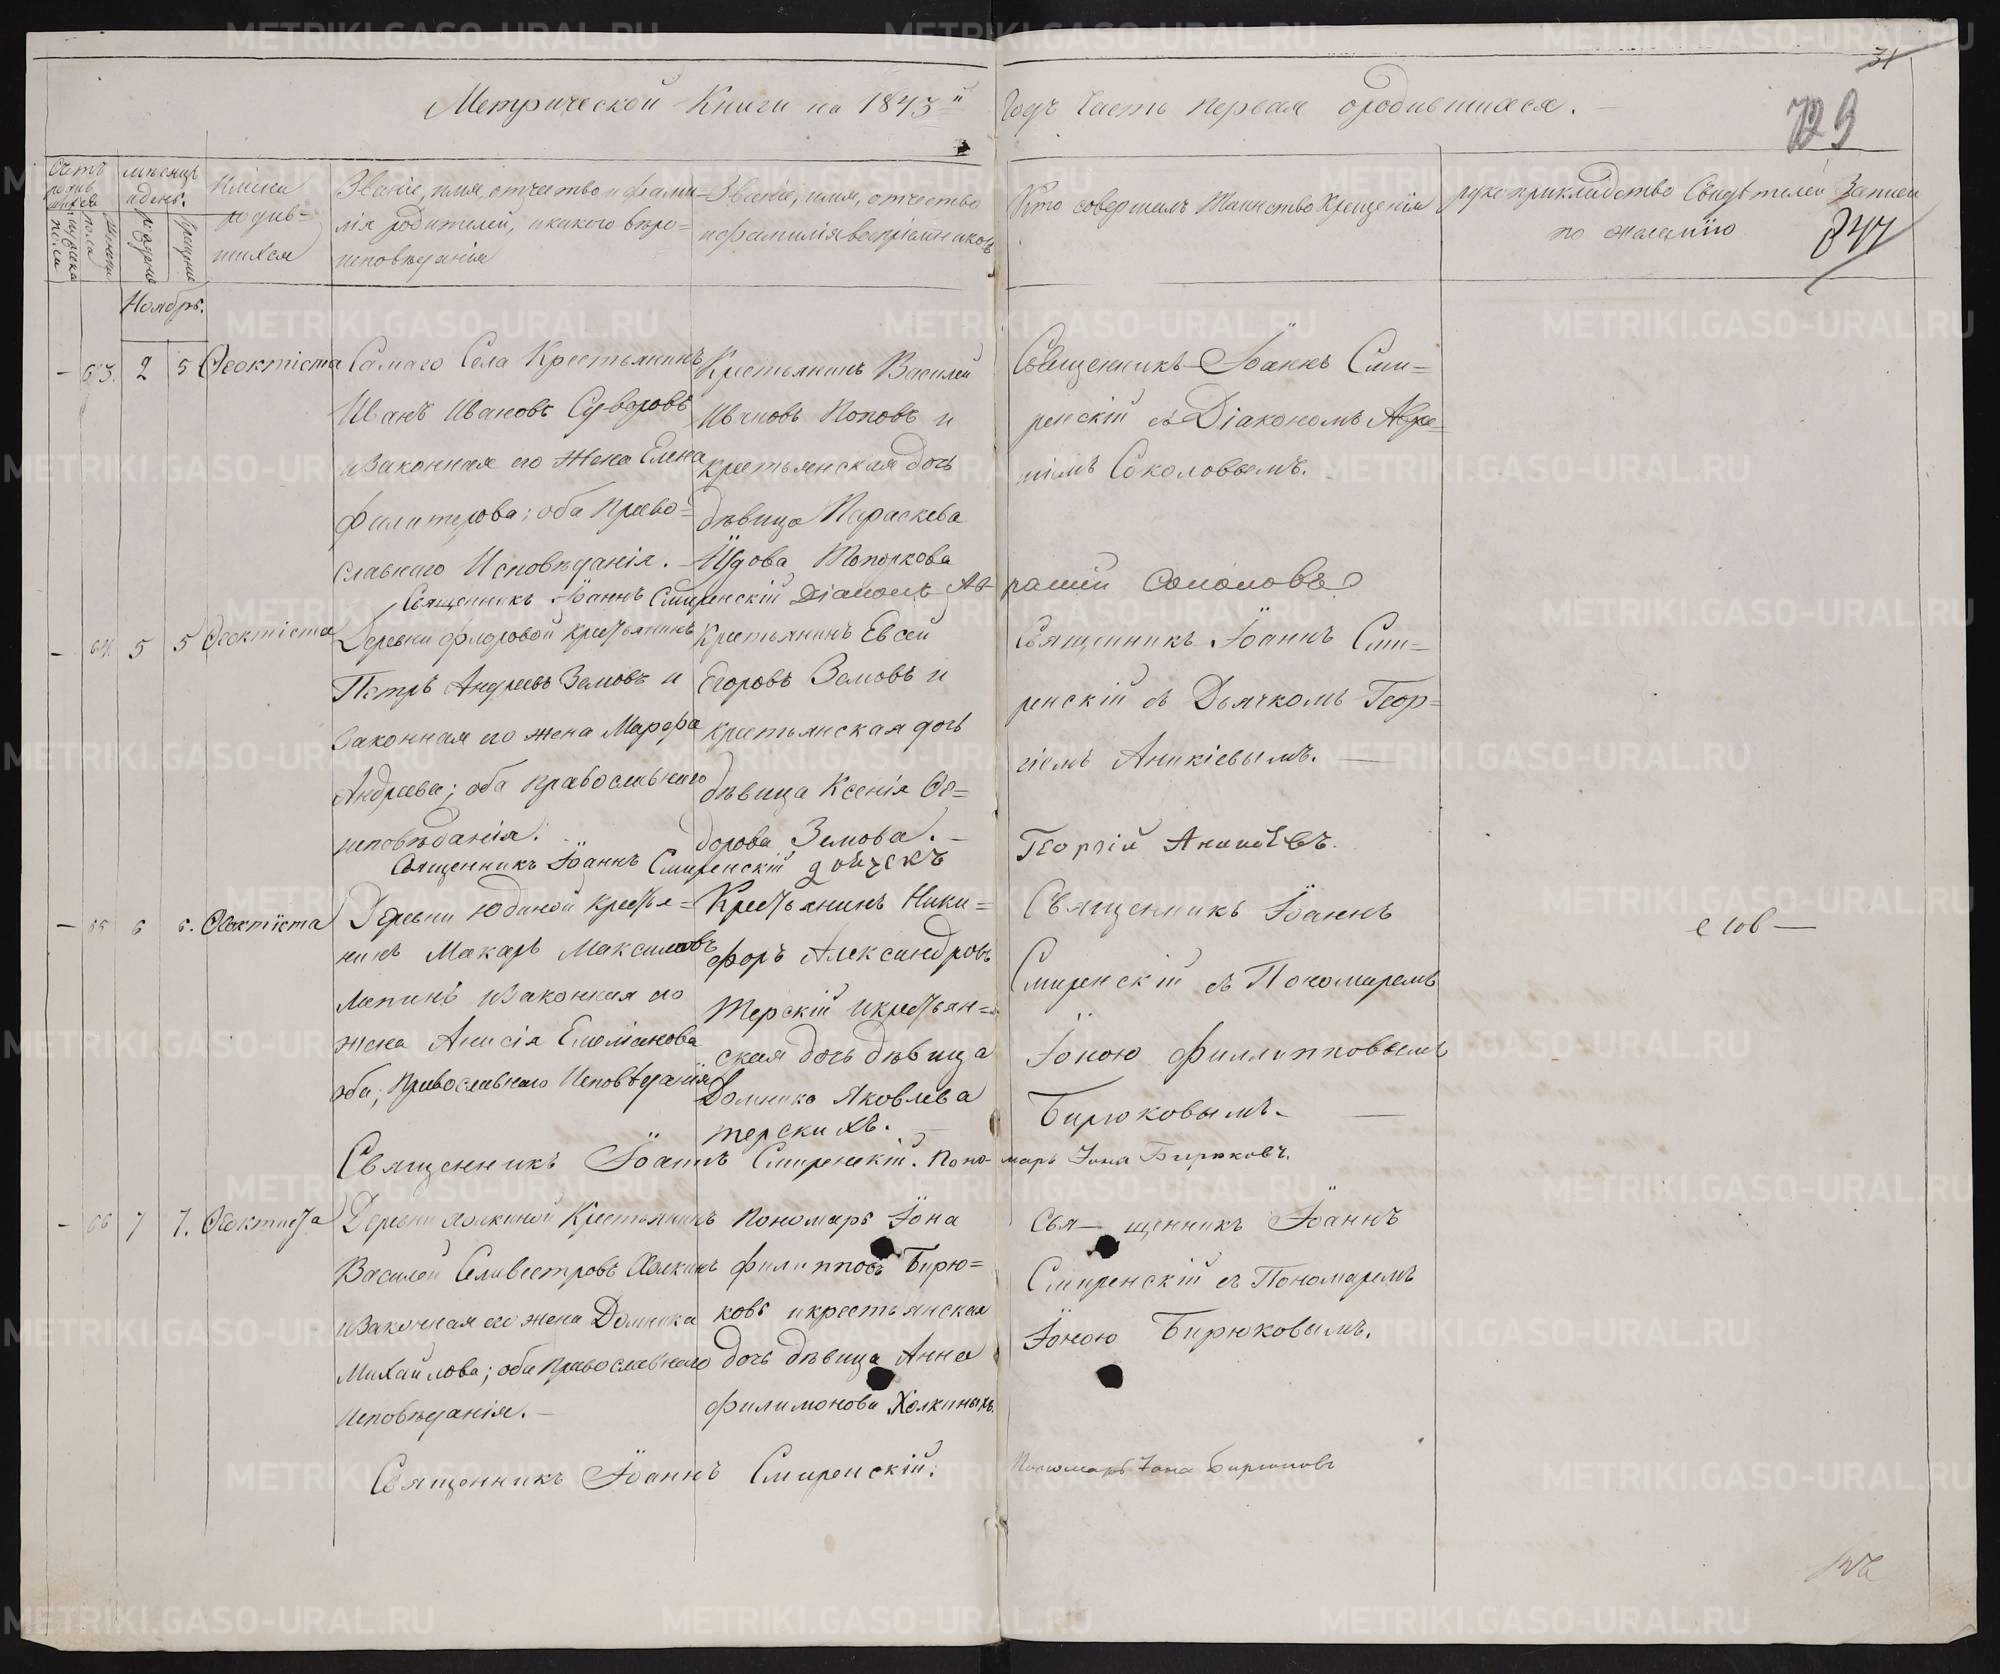 31
Метрической Книги на 1843й Годъ Часть первая ородившихся.
729
Счетъ родившихся
мѣсяцъ идень.
Имена родив=
шихся
Званіе, имя, отчество и фами=
лія родителей, икакого вѣро=
исповѣданія
Званіе, имя, отчество
ифамилія воспріемниковъ
Кто совершалъ Таинство Крещенія
рукоприкладство Свидѣтелей Записи
по желанію
мужеска пола
женска пола
рожденія
крещенія
Ноябрь.
– 63. 2 5 Ѳеоктиста
Самаго Села Крестьянинъ
Иванъ Ивановъ Суворовъ
изаконная его Жена Елена
Филитерова; оба Право=
славнаго Исповѣданія.
Крестьянинъ Василей
Ивановъ Поповъ и
крестьянская дочь
дѣвица Параскева
Іюдова Топоркова
Священникъ Іоаннъ Сми=
ренскій съ Діакономъ Авра=
міемъ Соколовымъ.
Священникъ Іоаннъ Смиренскій Діаконъ Ав рамій Соколовъ
– 64. 5 5 Ѳеоктиста
Деревни Фадѣевой крестьянинъ
Петръ Андреевъ Земовъ и
Законная его жена Марфа
Андреева; оба православнаго
исповѣданія.
Крестьянинъ Евсей
Егоровъ Земовъ и
крестьянская дочь
дѣвица Ксенія Ѳе=
дорова Земова. –
Священникъ Іоаннъ Сми=
ренскій съ Дьячкомъ Геор=
гіемъ Аникіевымъ. —
Священникъ Іоаннъ Смиренскій дьячекъ Георгій Аникіевъ.
– 65 6 6. Ѳеоктиста
Деревни Юдиной Крестья=
нинъ Макаръ Максимовъ
Лапинъ изаконная его
жена Анисія Емеліанова
оба; Православнаго Исповѣданія
Крестьянинъ Ники=
форъ Александровъ
Терскій икрестьян=
ская дочь дѣвица
Домника Яковлева
терскихъ.
Священникъ Іоаннъ
Смиренскій съ Пономаремъ
Іоною Филипповымъ
Бирюковымъ. —
Священникъ Іоаннъ Смиренскій. Поно- марь Іона Бирюковъ.
– 66 7 7. Ѳеоктиста
Деревни Холкиной Крестьянинъ
Василей Селивестровъ Холкинъ
изаконная его жена Домника
Михайлова; оба Православнаго
Исповѣданія. –
Пономарь Іона
Филипповъ Бирю=
ковъ икрестьянская
дочь дѣвица Анна
Филимонова Холкиныхъ.
Свя— щенникъ Іоаннъ
Смиренскій съ Пономаремъ
Іоною Бирюковымъ.
Священникъ Іоаннъ Смиренскій. Пономарь Іона Бирюковъ
METRIKI.GASO-URAL.RU